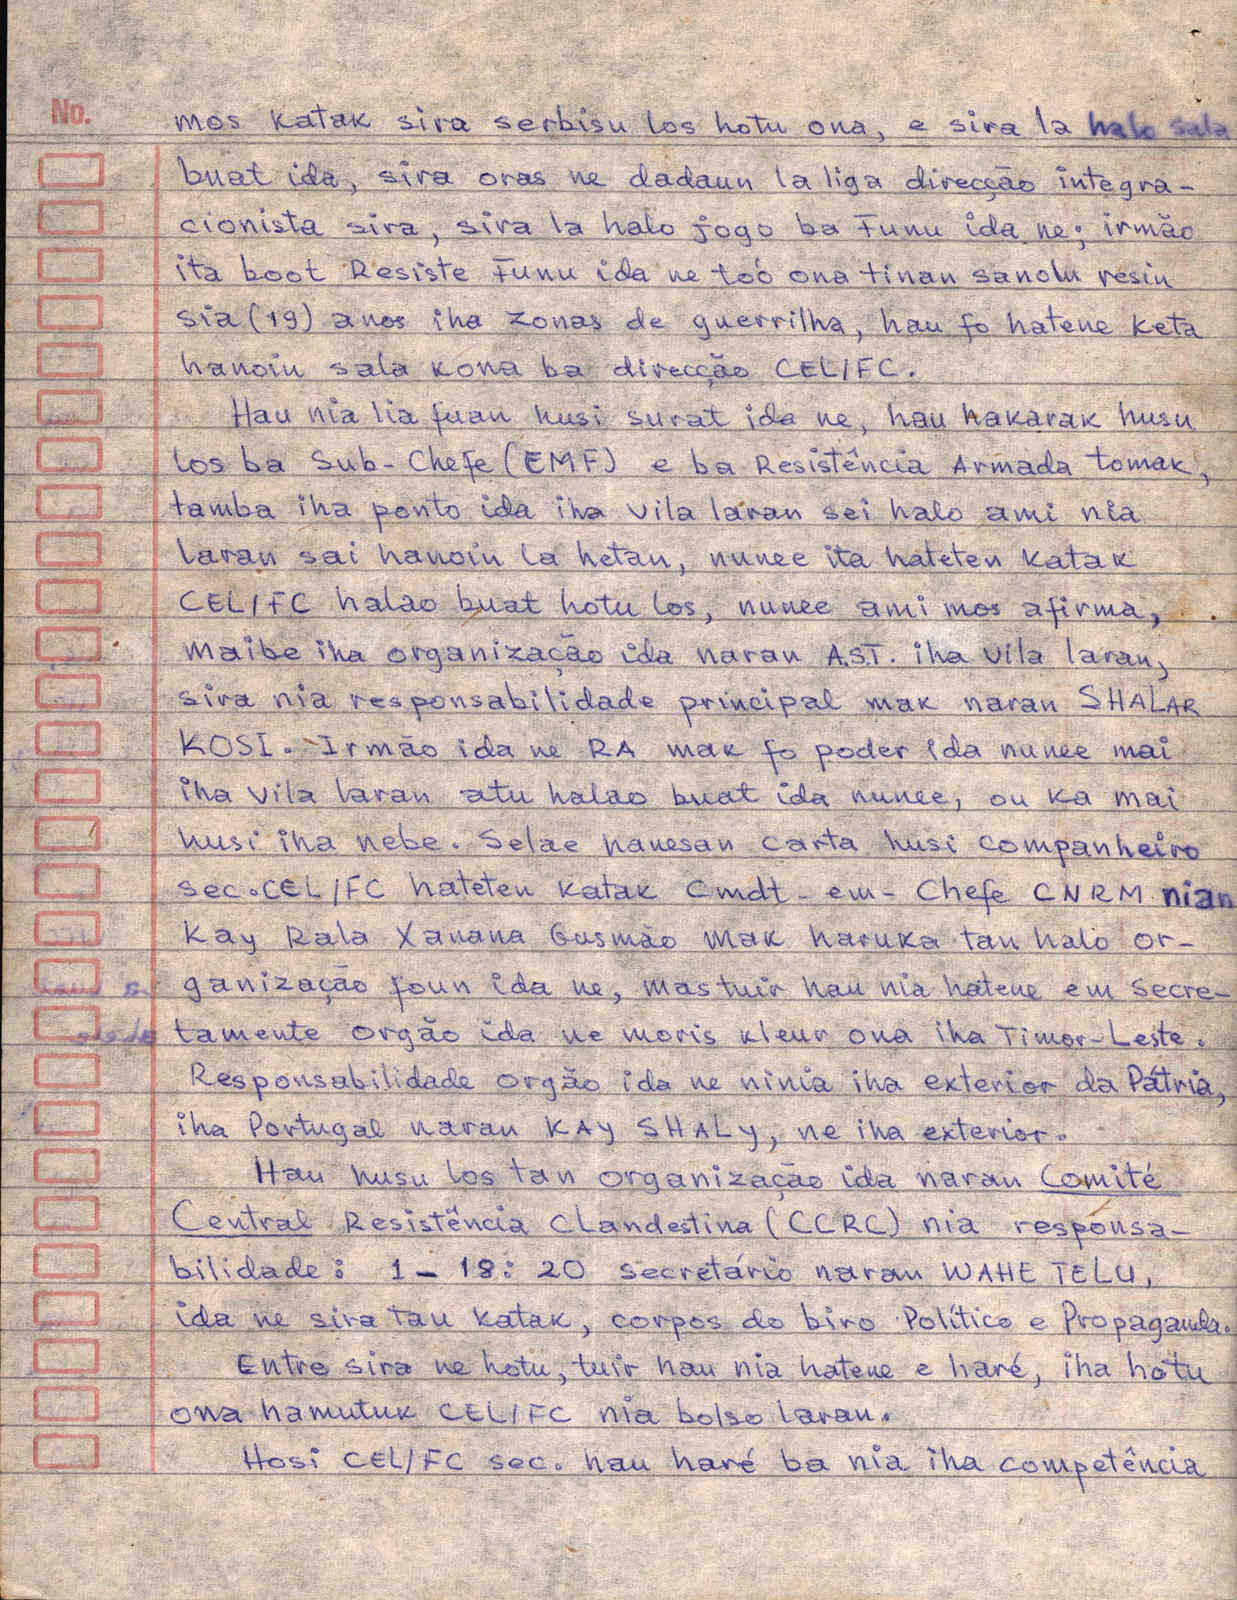 No.
mos katak sira serbisu los hotu ona, e sira la halo sala
buat ida, sira oras ne dadaun la liga direcção integra-
cionista sira, sira la halo jogo ba Funu ida ne; irmão
ita boot Resiste Funu ida ne toó ona tinan sanolu resin
sia (19) anos iha zonas de guerrilha, hau fo hatene keta
hanoin sala kona ba direcção CEL/FC.
Hau nia lia fuan husi surat ida ne, hau hakarak husu
los ba Sub-Chefe (EMF) e ba Resistência Armada tomak,
tamba iha ponto ida iha vila laran sei halo ami nia
laran sai hanoin la hetan, nunee ita hateten katak
CEL/FC halao buat hotu los, nunee ami mos afirma,
maibe iha organização ida naran A.S.T. iha vila laran,
sira nia responsabilidade principal mak naran SHALAR
KOSI. Irmão ida ne RA mak fo poder ida nunee mai
iha vila laran atu halao buat ida nunee, ou ka mai
husi iha nebe. Selae hanesan carta husi companheiro
sec. CEL/FC hateten katak Cmdt-em-Chefe CNRM nian
Kay Rala Xanana Gusmão mak haruka tan halo or-
ganização foun ida ne, mas tuir hau nia hatene em secre-
tamente orgão ida ne moris kleur ona iha Timor-Leste.
Responsabilidade orgão ida ne ninia iha exterior da Pátria,
iha Portugal naran KAY SHALY, ne iha exterior.
Hau husu los tan organização ida naran Comité
Central Resistência Clandestina (CCRC) nia responsa-
bilidade: 1-18: 20 secretário naran WAHE TELU,
ida ne sira tau katak, corpos do biro Político e Propaganda.
Entre sira ne hotu, tuir hau nia hatene e haré, iha hotu
ona hamutuk CEL/FC nia bolso laran.
Hosi CEL/FC sec. hau haré ba nia iha competência